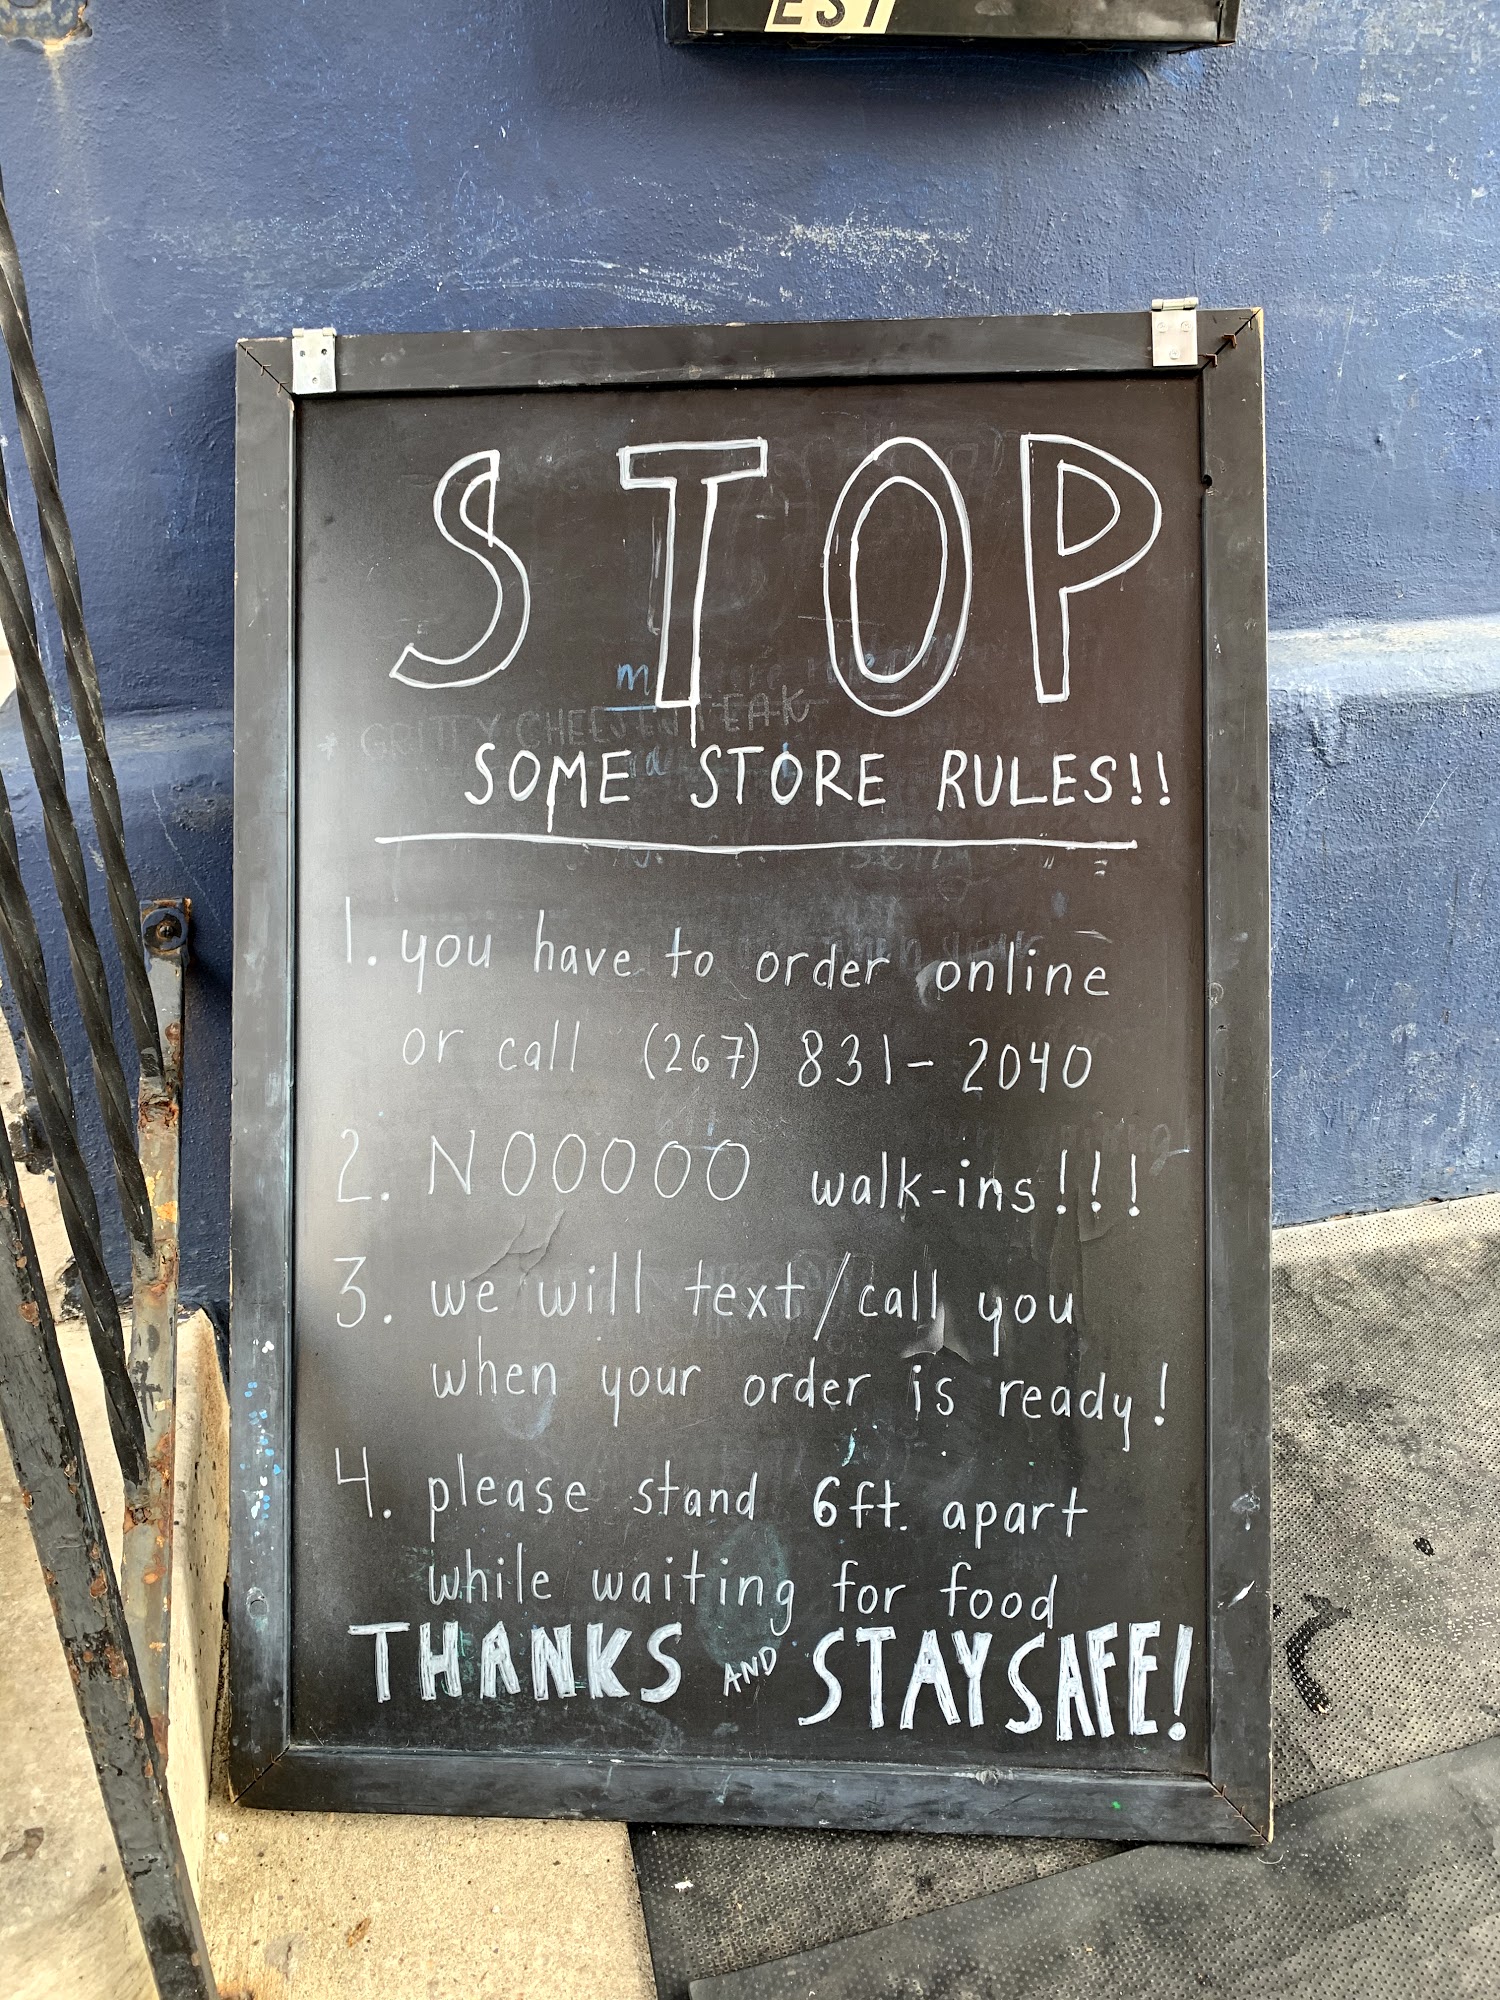 EST
STOP
GRITTY CHEESESTEAK
SOME STORE RULES!!
1. you have to order online
or call (267) 831-2040
2. NOOOOO walk-ins!!!
3. we will text/call you
when your order is ready!
4. please stand 6ft. apart
while waiting for food
THANKS AND STAY SAFE!